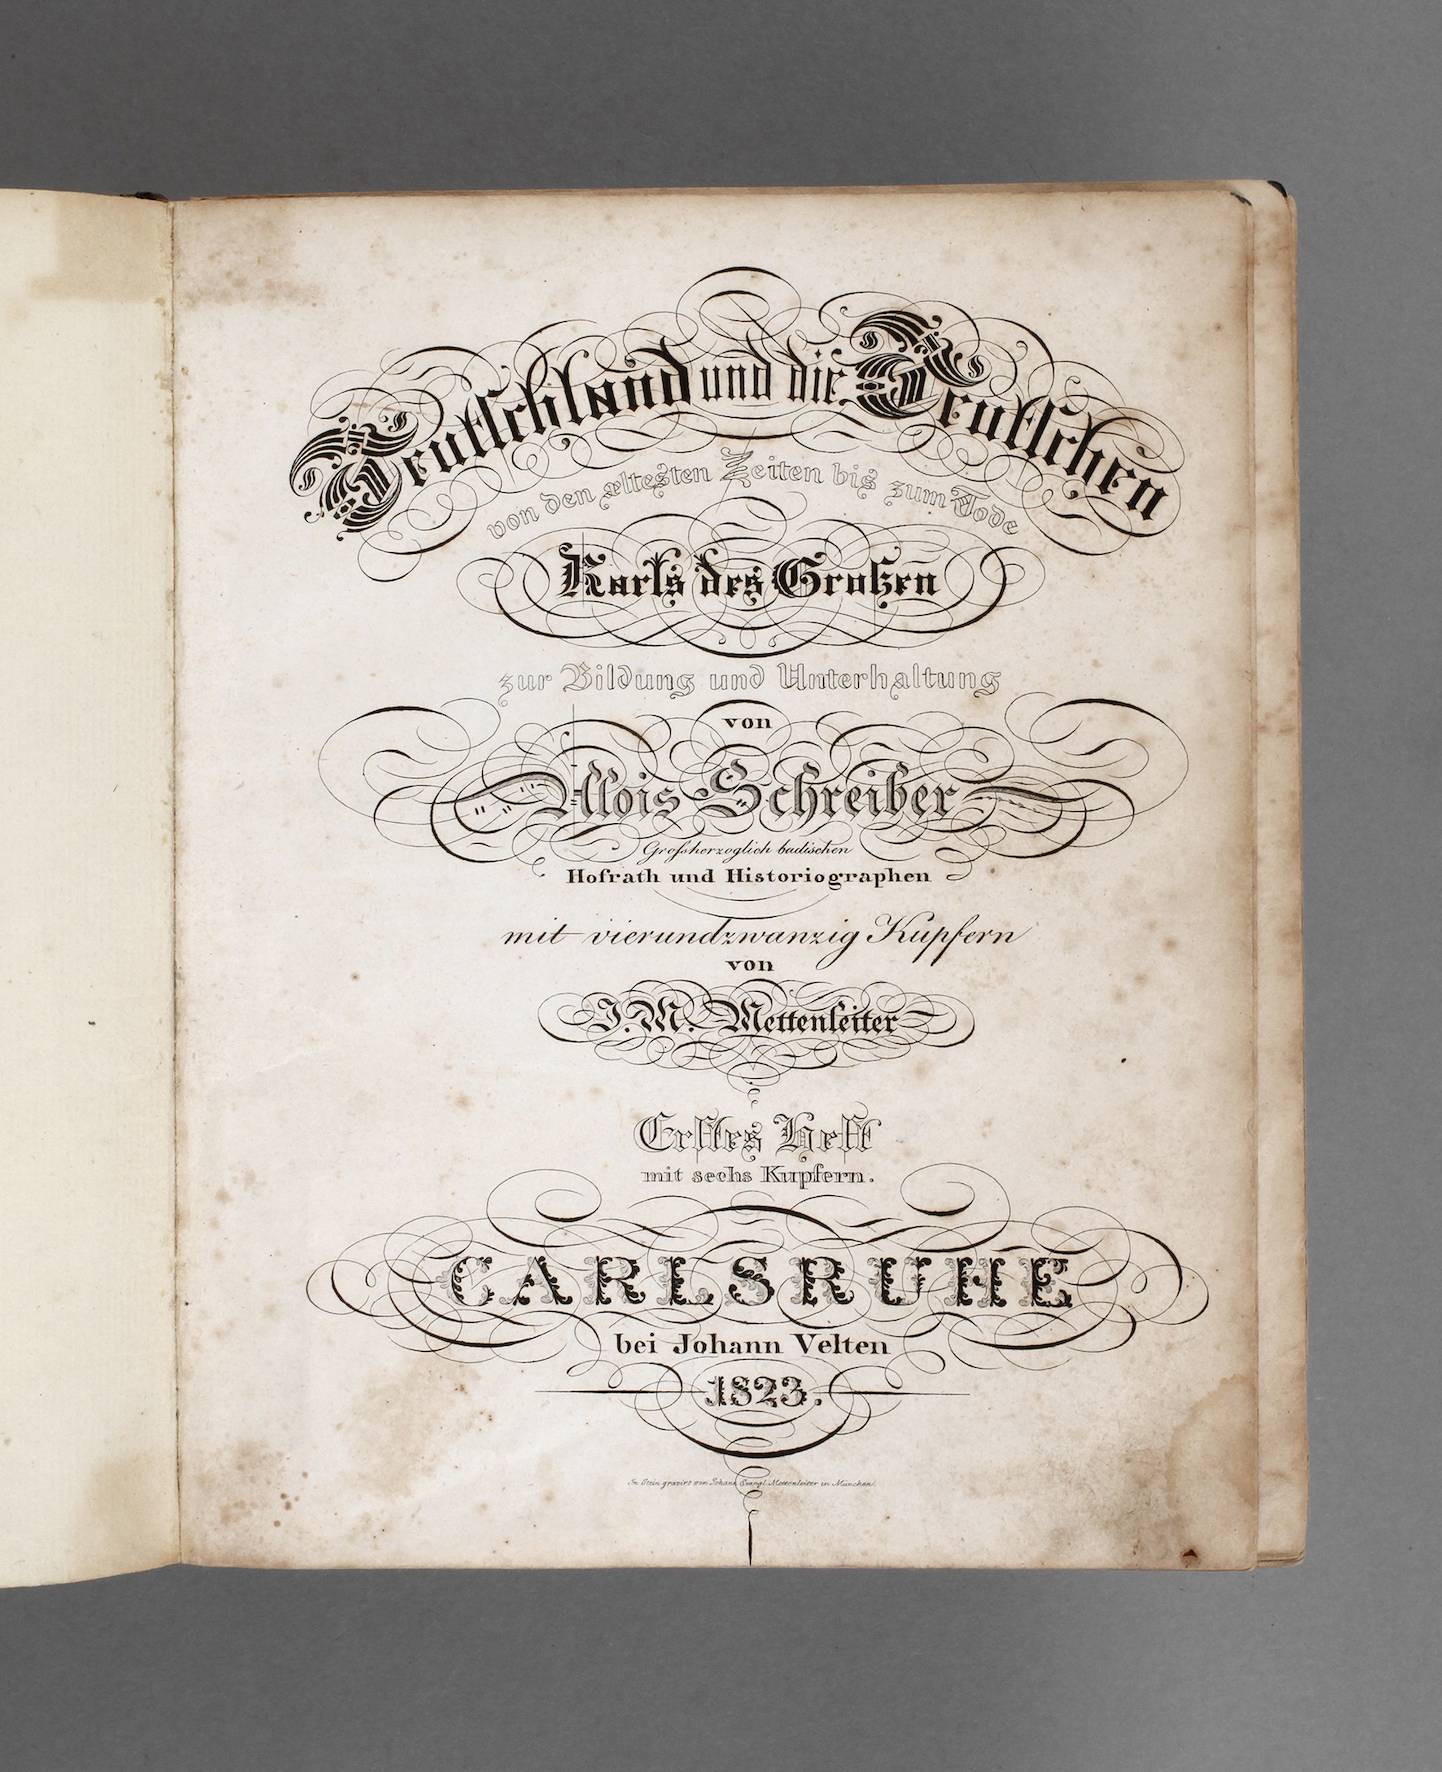 Teutschland und die Teutschen
von den æltesten Zeiten bis zum Tode
Karls des Großen
zur Bildung und Unterhaltung
von
Alois Schreiber
Großherzoglich badischen
Hofrath und Historiographen
mit vierundzwanzig Kupfern
von
J. M. Mettenleiter
Erstes Heft
mit sechs Kupfern.
CARLSRUHE
bei Johann Velten
1823.
In Stein gravirt von Johann Evangl. Mettenleiter in München.